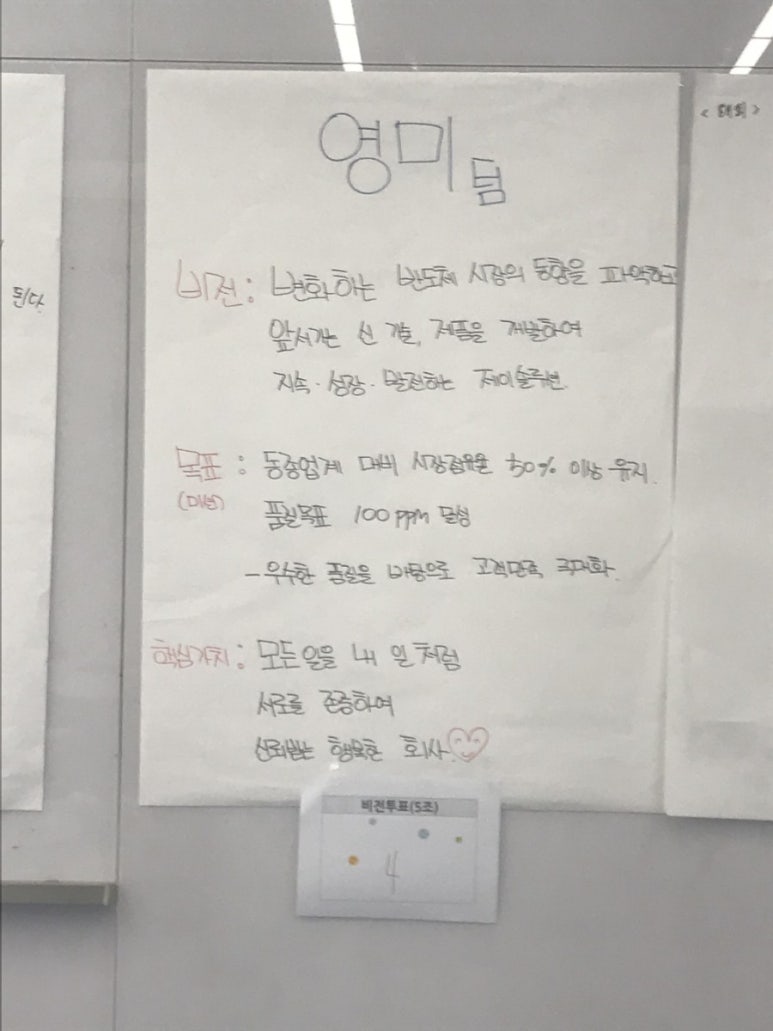 영미팀
비전 : 변화하는 반도체 시장의 동향을 파악하고
앞서가는 신 기술, 제품을 개발하여
지속·성장·발전하는 제이솔루션.
목표 : 동종업계 대비 시장점유율 50% 이상 유지.
(미션) 품질목표 100ppm 달성
- 우수한 품질을 바탕으로 고객만족 극대화.
핵심가치 : 모든일을 내 일처럼
서로를 존중하여
신뢰받는 행복한 회사
비전투표(5조)
4
된다.